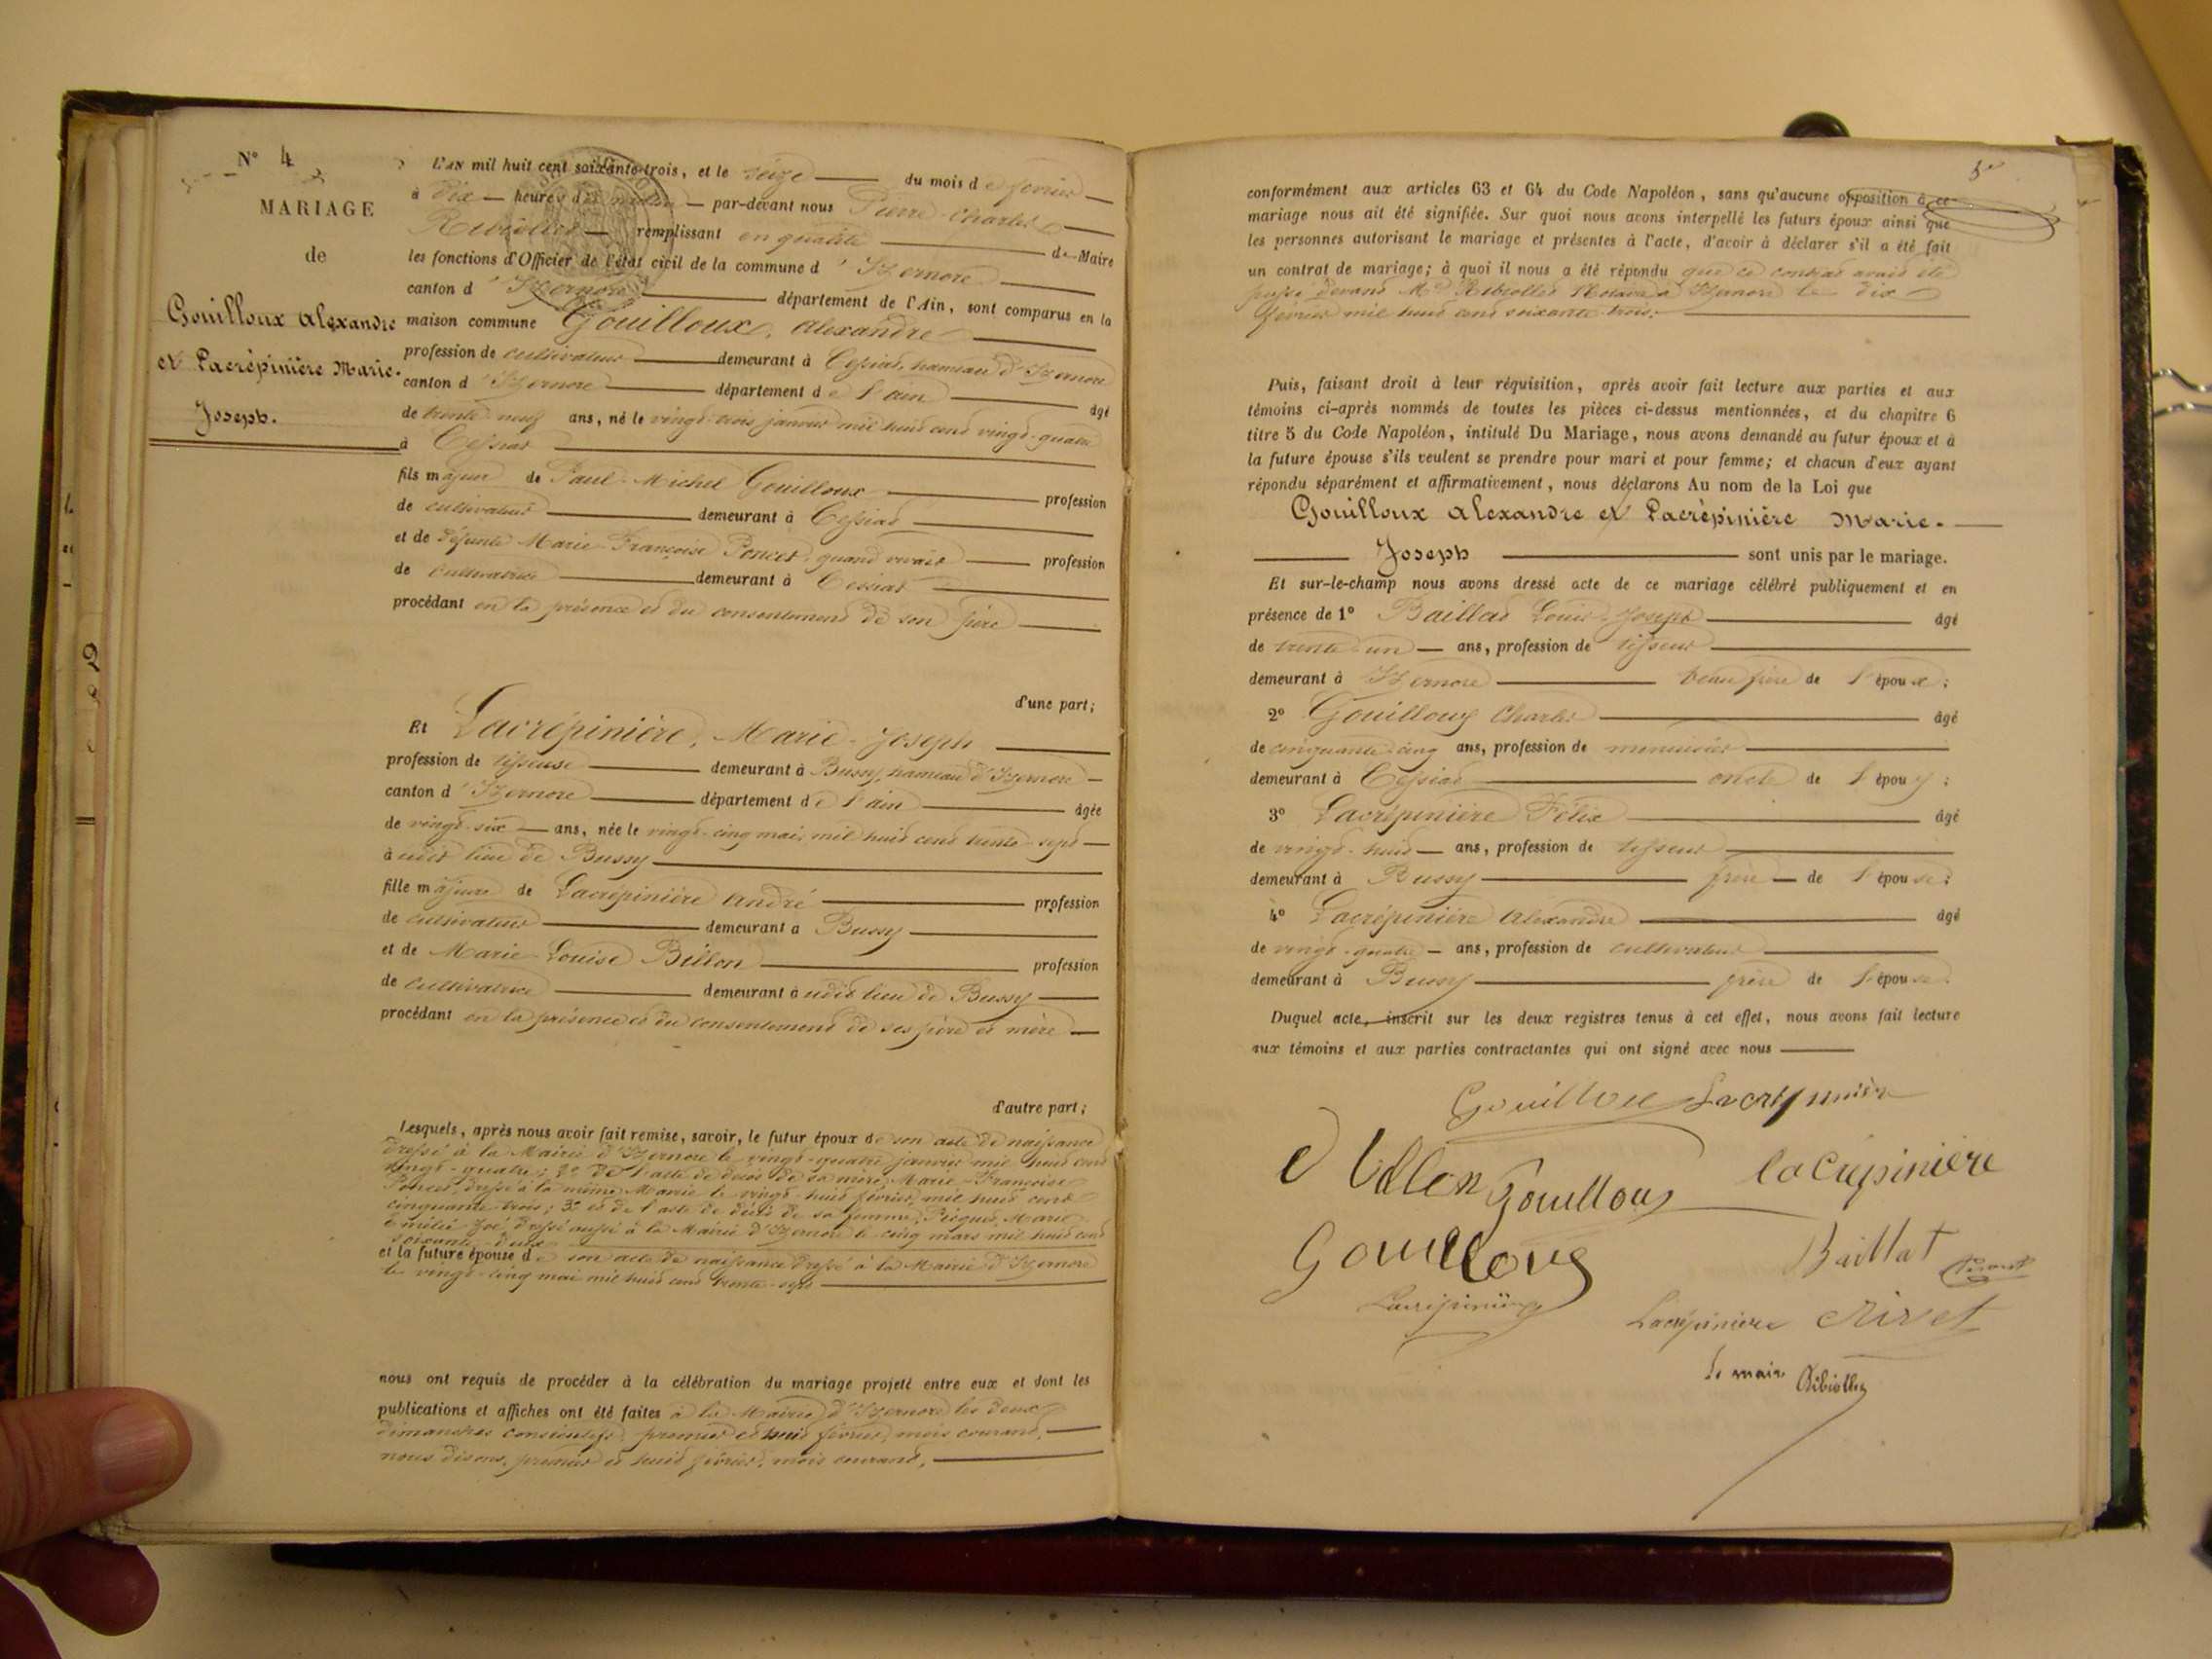 N° 4
MARIAGE
de
Gouilloux Alexandre
et Lacrépinière Marie-
Joseph.
L'an mil huit cent soixante-trois, et le seize du mois de février
à dix heures du matin par-devant nous Pierre Charles
Ribiollet remplissant en qualité de Maire
les fonctions d'Officier de l'état civil de la commune d'Izernore
canton d'Izernore département de l'Ain, sont comparus en la
maison commune Gouilloux, Alexandre
profession de cultivateur demeurant à Cessiat, hameau d'Izernore
canton d'Izernore département de l'ain âgé
de trente neuf ans, né le vingt-trois janvier mil huit cent vingt-quatre
à Cessiat
fils majeur de Paul-Michel Gouilloux profession
de cultivateur demeurant à Cessiat
et de défunte Marie-Françoise Poncet, quand vivait profession
de cultivatrice demeurant à Cessiat
procédant en la présence et du consentement de son père
d'une part;
Et Lacrépinière, Marie-Joseph
profession de tisseuse demeurant à Bussy, hameau d'Izernore
canton d'Izernore département de l'ain âgée
de vingt-six ans, née le vingt-cinq mai, mil huit cent trente-sept
à udit lieu de Bussy
fille majeure de Lacrépinière André profession
de cultivateur demeurant à Bussy
et de Marie-Louise Billon profession
de cultivatrice demeurant à udit lieu de Bussy
procédant en la présence et du consentement de ses père et mère
d'autre part;
Lesquels, après nous avoir fait remise, savoir, le futur époux de son acte de naissance
dressé à la Mairie d'Izernore le vingt-quatre janvier mil huit cent
vingt-quatre; 2° de l'acte de décès de sa mère, Marie-Françoise
Poncet, dressé à la même Mairie le vingt-huit février, mil huit cent
cinquante-trois; 3° et de l'acte de décès de sa femme, Marie
Emélie-Zoé dressé aussi à la Mairie d'Izernore le cinq mars mil huit cent
soixante-deux
et la future épouse de son acte de naissance dressé à la Mairie d'Izernore
le vingt-cinq mai mil huit cent trente-sept
nous ont requis de procéder à la célébration du mariage projeté entre eux et dont les
publications et affiches ont été faites à la Mairie d'Izernore les deux
dimanches consécutifs, premier et huit février, mois courant,
nous disons, premier et huit février, mois courant,
conformément aux articles 63 et 64 du Code Napoléon, sans qu'aucune opposition à ce
mariage nous ait été signifiée. Sur quoi nous avons interpellé les futurs époux ainsi que
les personnes autorisant le mariage et présentes à l'acte, d'avoir à déclarer s'il a été fait
un contrat de mariage; à quoi il nous a été répondu que ce contrat avait été
passé devant Me Ribiollet Notaire à Izernore le dix
février mil huit cent soixante-trois.
Puis, faisant droit à leur réquisition, après avoir fait lecture aux parties et aux
témoins ci-après nommés de toutes les pièces ci-dessus mentionnées, et du chapitre 6
titre 5 du Code Napoléon, intitulé Du Mariage, nous avons demandé au futur époux et à
la future épouse s'ils veulent se prendre pour mari et pour femme; et chacun d'eux ayant
répondu séparément et affirmativement, nous déclarons Au nom de la Loi que
Gouilloux Alexandre et Lacrépinière Marie-
Joseph sont unis par le mariage.
Et sur-le-champ nous avons dressé acte de ce mariage célébré publiquement et en
présence de 1° Baillat Louis-Joseph âgé
de trente-un ans, profession de tisseur
demeurant à Izernore beau frère de l'époux;
2° Gouilloux Charles âgé
de cinquante-cinq ans, profession de menuisier
demeurant à Cessiat oncle de l'époux;
3° Lacrépinière Félix âgé
de vingt-huit ans, profession de tisseur
demeurant à Bussy frère de l'épouse;
4° Lacrépinière Alexandre âgé
de vingt-quatre ans, profession de cultivateur
demeurant à Bussy frère de l'épouse.
Duquel acte, inscrit sur les deux registres tenus à cet effet, nous avons fait lecture
aux témoins et aux parties contractantes qui ont signé avec nous
Gouilloux
Gouilloux lacrépinière
Gouilloux Baillat
Lacrépinière
Lacrépinière
le maire Ribiollet